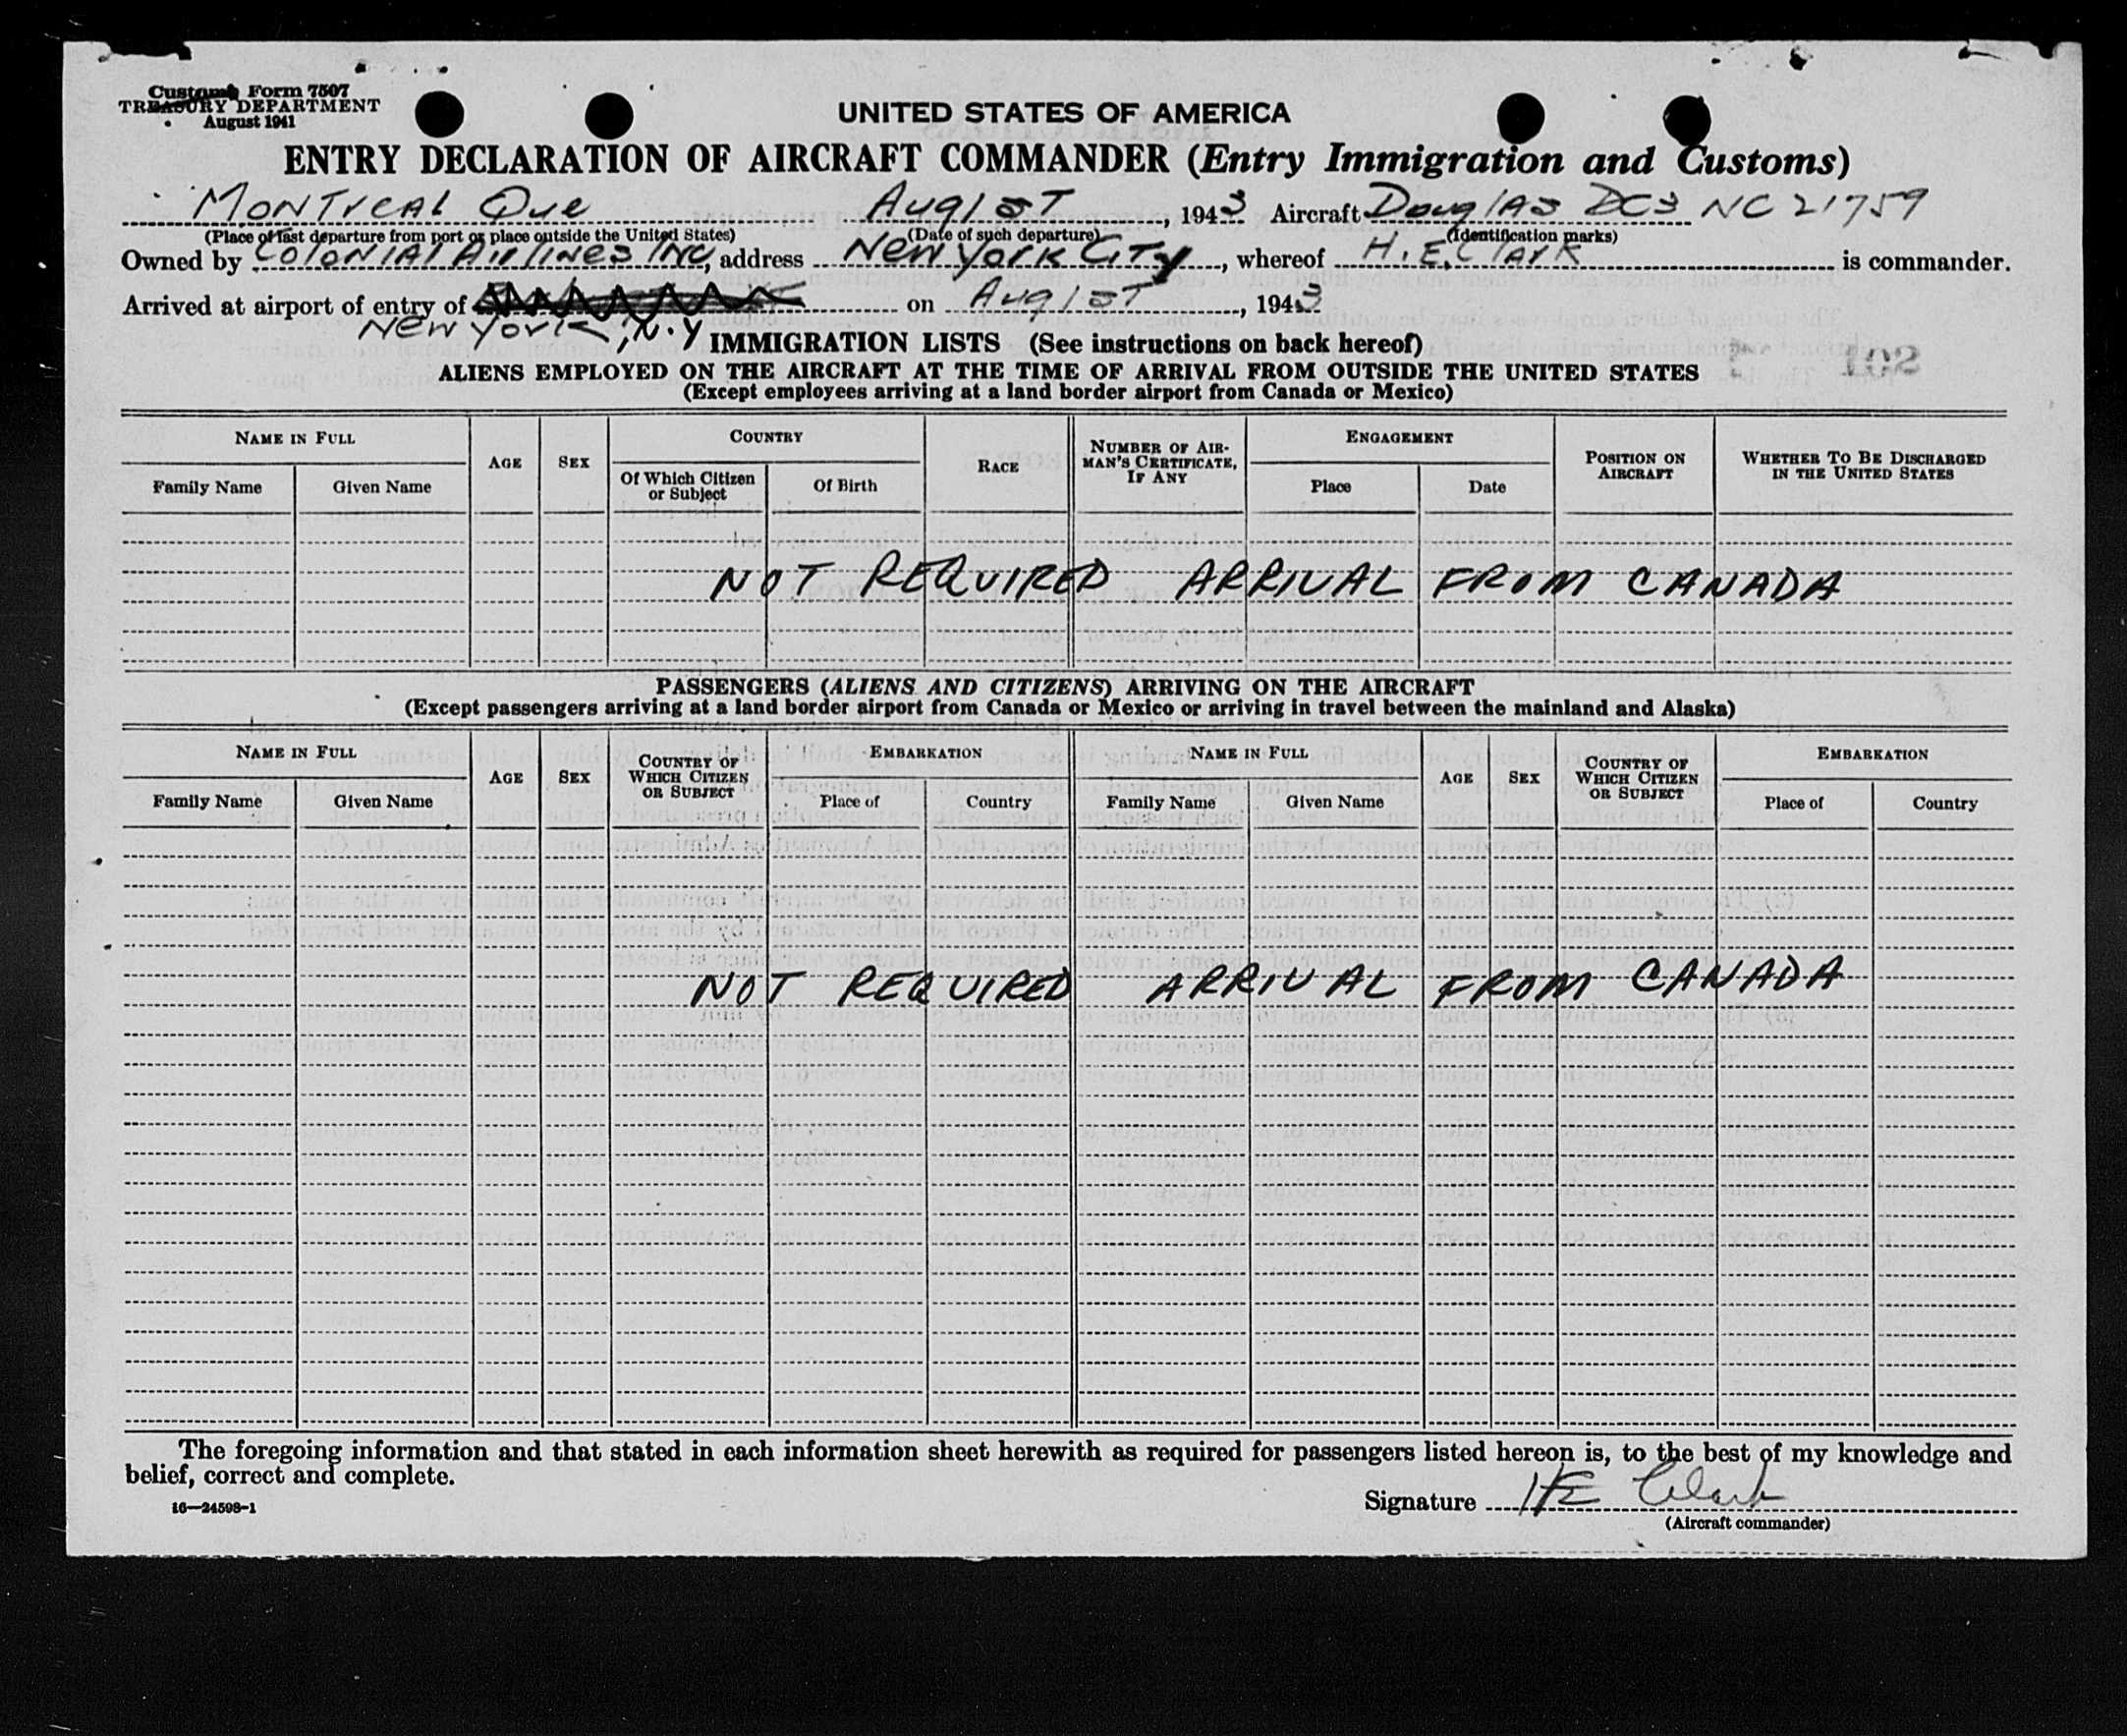 Customs Form 7507
TREASURY DEPARTMENT
August 1941
UNITED STATES OF AMERICA
ENTRY DECLARATION OF AIRCRAFT COMMANDER (Entry Immigration and Customs)
Montreal Que Aug 1st, 1943 Aircraft Douglas DC3 NC 21759
(Place of last departure from port or place outside the United States) (Date of such departure) (Identification marks)
Owned by Colonial Airlines Inc, address New York City, whereof H. E. Clark is commander.
Arrived at airport of entry of on Aug 1st, 1943
New York, N.Y
IMMIGRATION LISTS (See instructions on back hereof)
ALIENS EMPLOYED ON THE AIRCRAFT AT THE TIME OF ARRIVAL FROM OUTSIDE THE UNITED STATES
(Except employees arriving at a land border airport from Canada or Mexico)
NAME IN FULL AGE SEX COUNTRY RACE NUMBER OF AIRMAN'S CERTIFICATE, IF ANY ENGAGEMENT POSITION ON AIRCRAFT WHETHER TO BE DISCHARGED IN THE UNITED STATES
Family Name Given Name Of Which Citizen or Subject Of Birth Place Date
NOT REQUIRED ARRIVAL FROM CANADA
PASSENGERS (ALIENS AND CITIZENS) ARRIVING ON THE AIRCRAFT
(Except passengers arriving at a land border airport from Canada or Mexico or arriving in travel between the mainland and Alaska)
NAME IN FULL AGE SEX COUNTRY OF WHICH CITIZEN OR SUBJECT EMBARKATION NAME IN FULL AGE SEX COUNTRY OF WHICH CITIZEN OR SUBJECT EMBARKATION
Family Name Given Name Place of Country Family Name Given Name Place of Country
NOT REQUIRED ARRIVAL FROM CANADA
The foregoing information and that stated in each information sheet herewith as required for passengers listed hereon is, to the best of my knowledge and
belief, correct and complete.
16—24598-1
Signature HE Clark
(Aircraft commander)